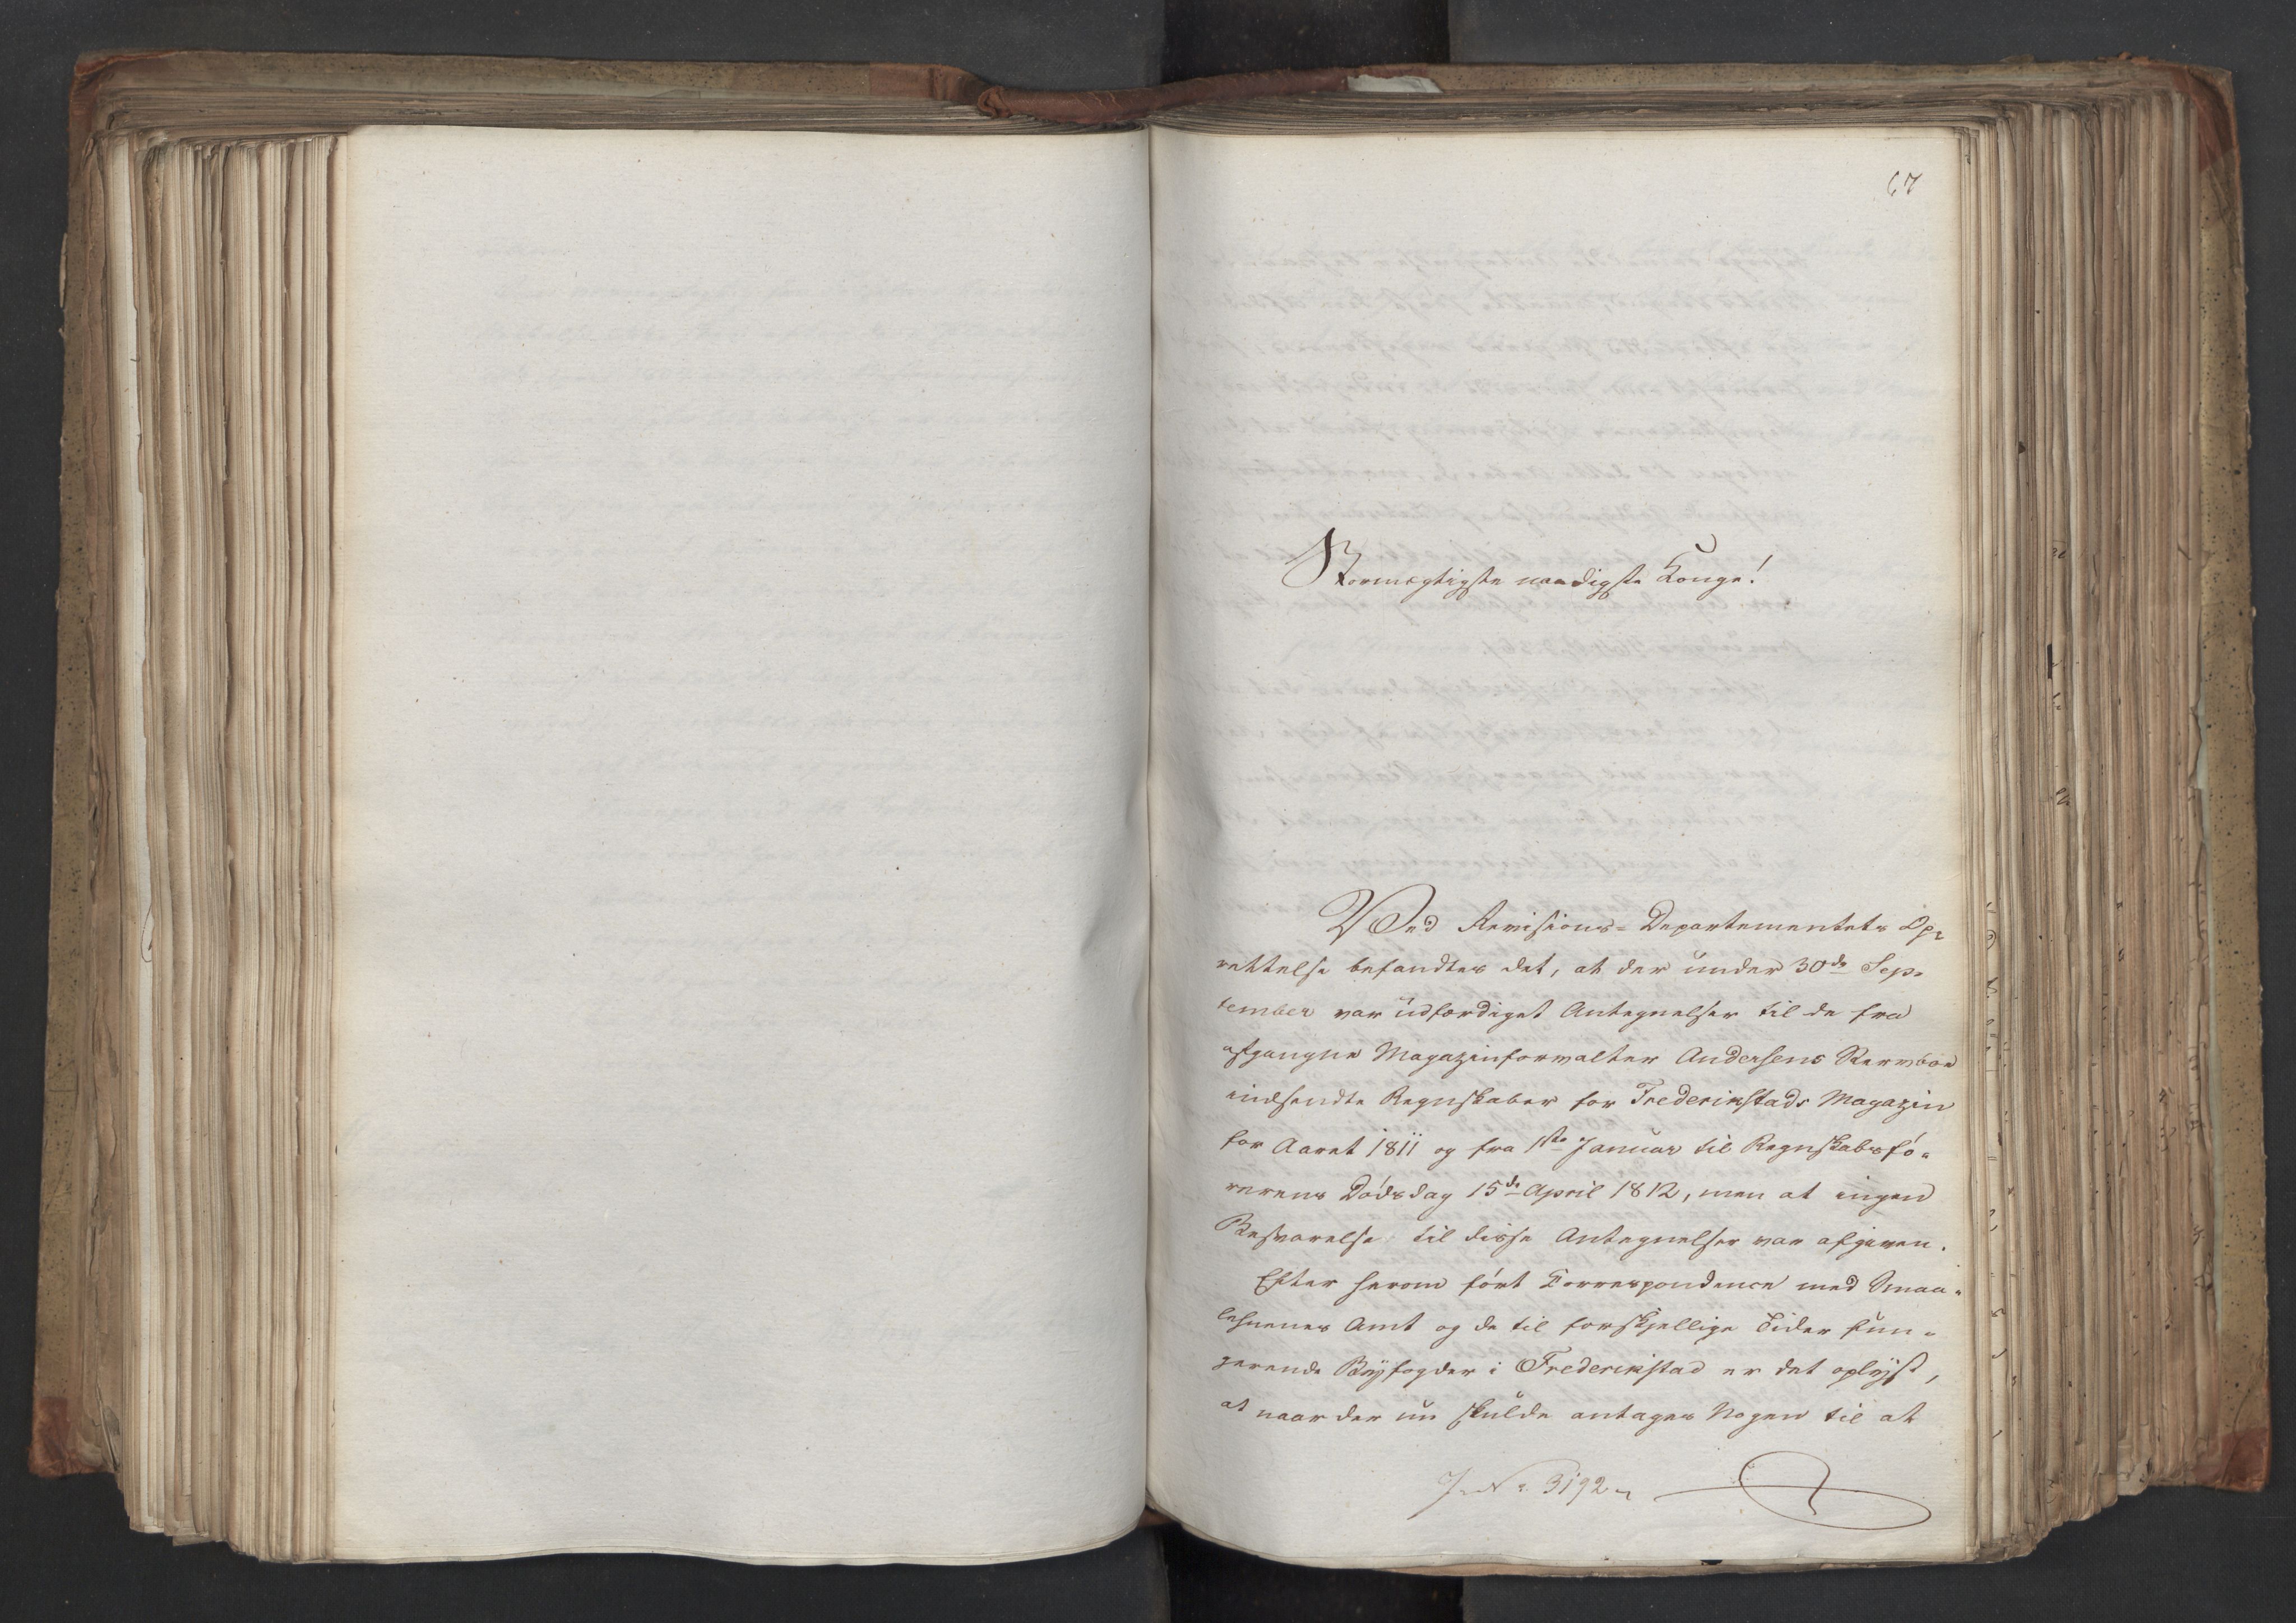 67
Stormægtigste naadigste Konge!
Ved Revisions-Departementets Op-
rettelse befandtes det, at der under 30de Sep-
tember var udfærdiget Antegnelser til de fra
afgangne Magazinforvalter Andersens Stervboe
indsendte Regnskaber for Frederikstads Magazin
for Aaret 1811 og fra 1ste Januar til Regnskabsfø-
rerens Dødsdag 15de April 1812, men at ingen
Besvarelse til disse Antegnelser var afgiven.
Efter herom ført Correspondence med Smaa-
lehnenes Amt og de til forskjellige Tider fun-
gerende Byfogder i Frederikstad er det oplyst,
at naar der nu skulde antages Nogen til at
J. No. 3192.